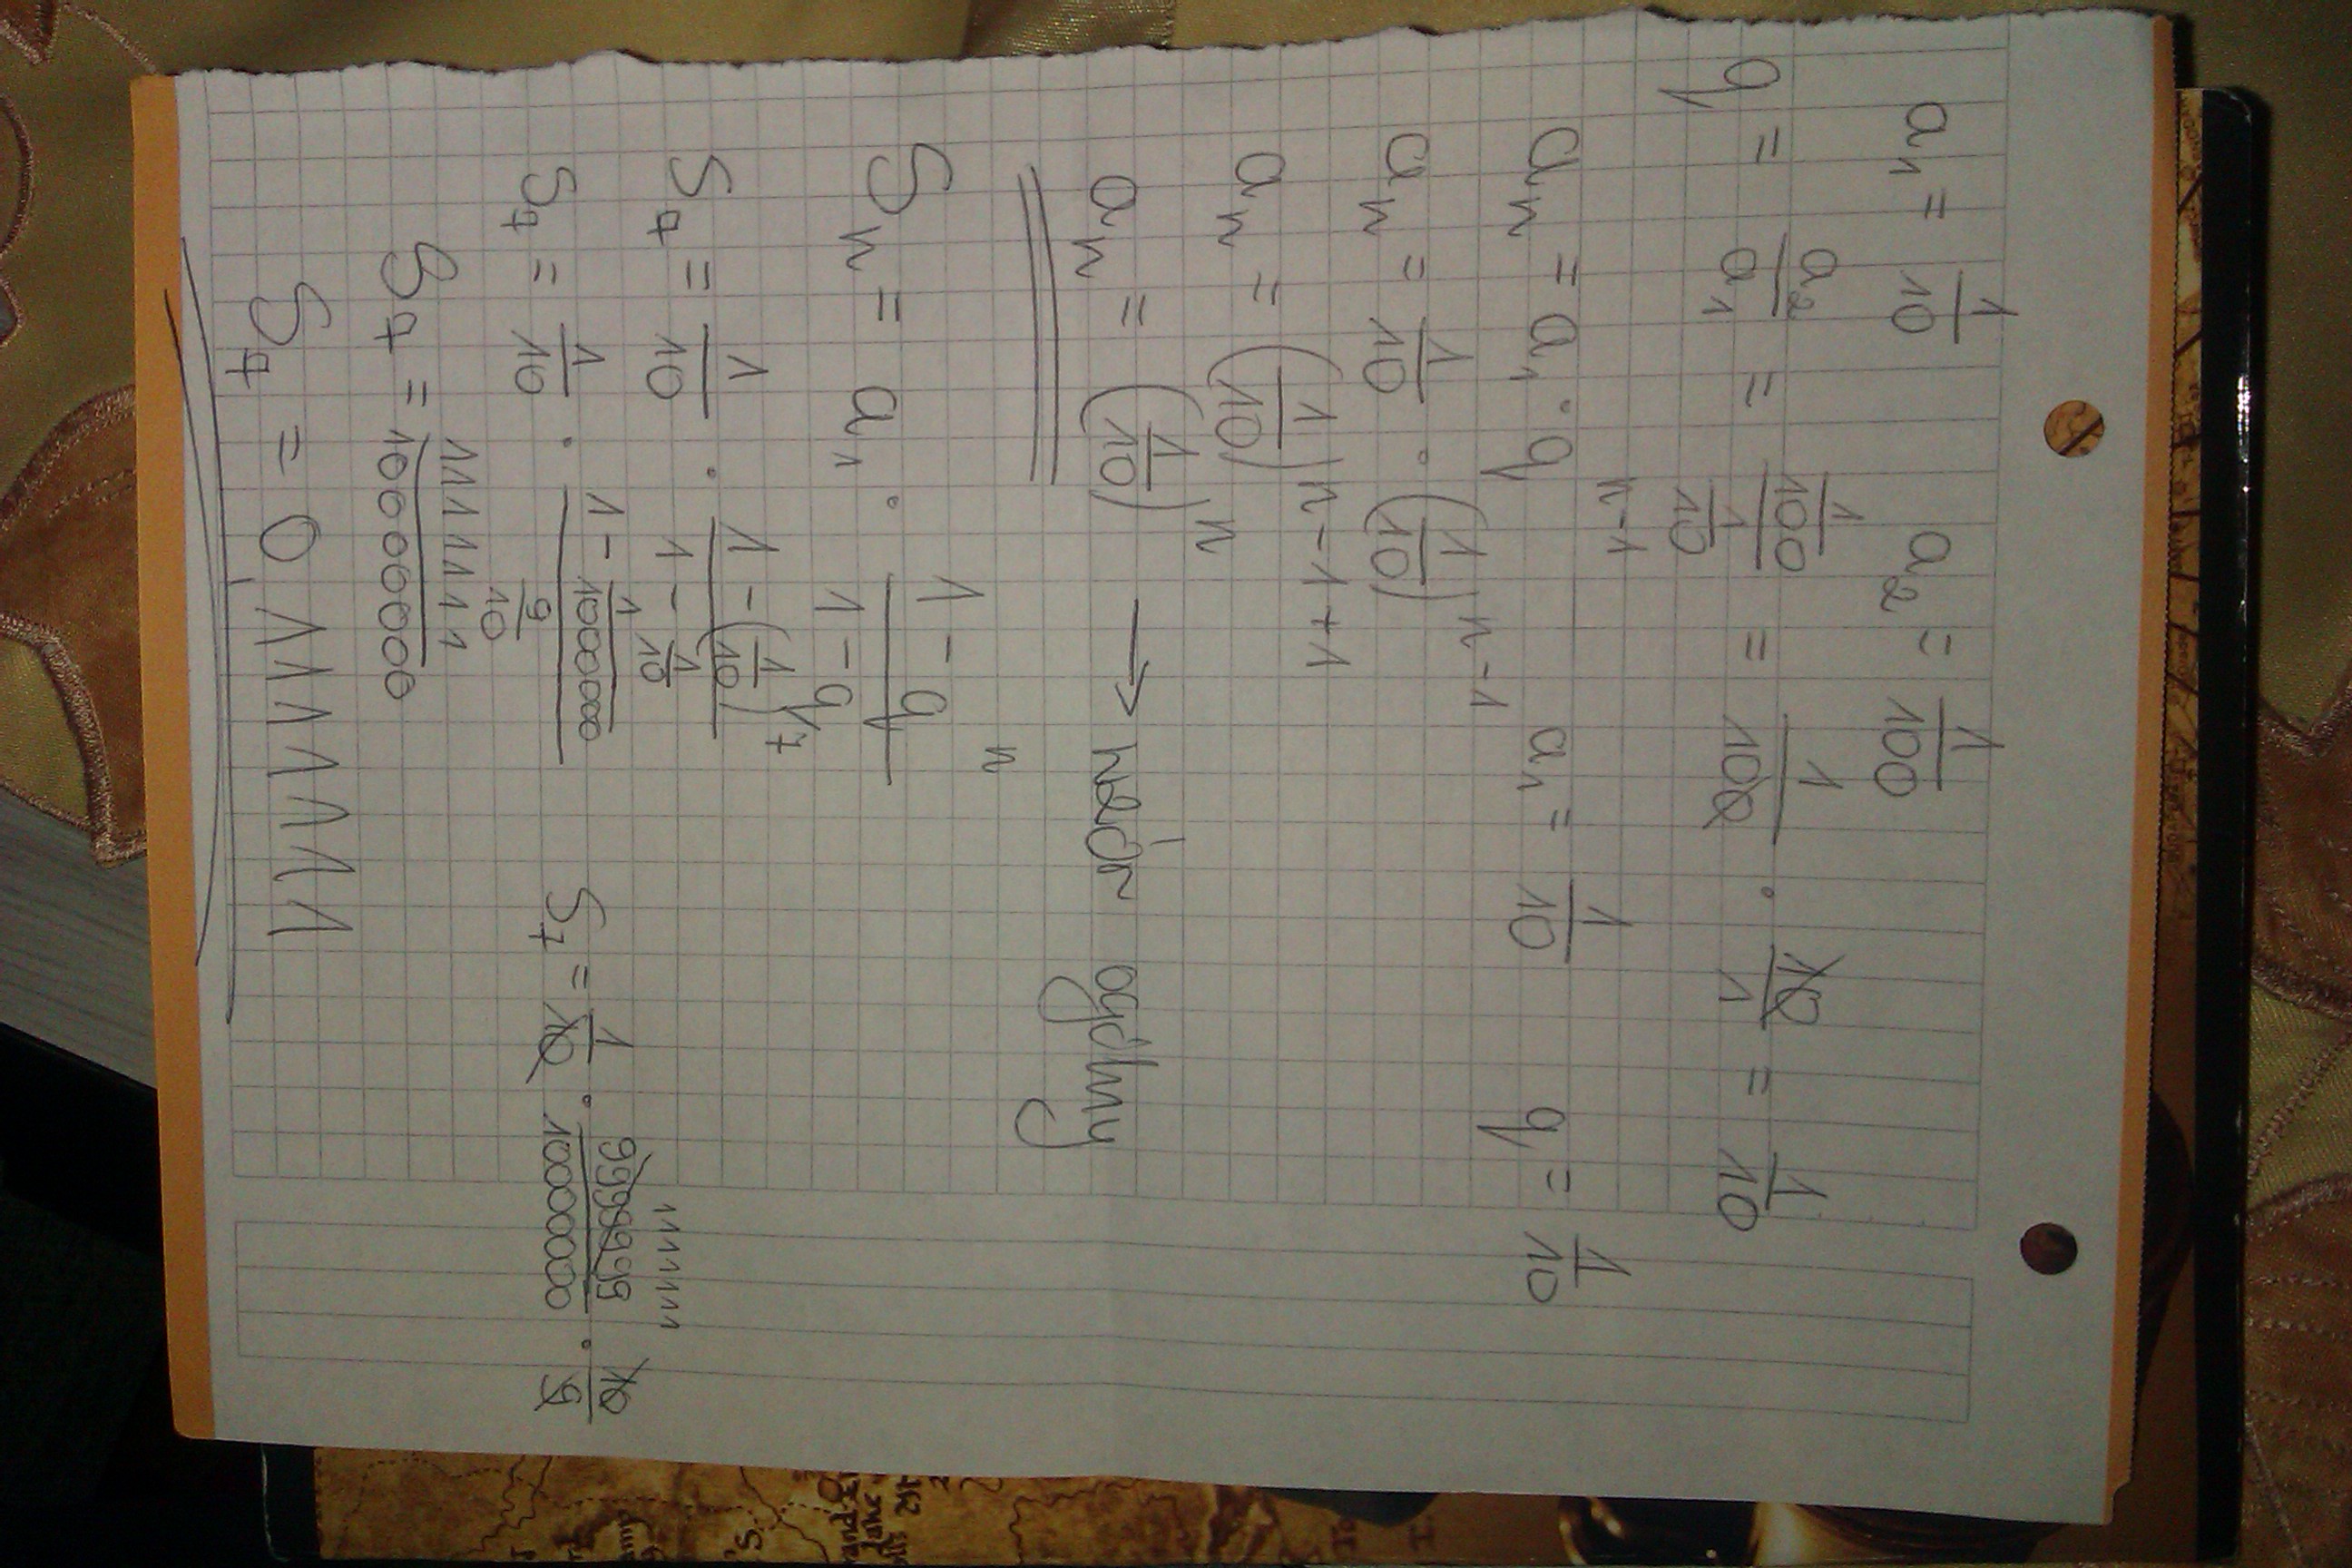 a₁ = 1/10   a₂ = 1/100
q = a₂/a₁ = (1/100)/(1/10) = 1/100 · 10/1 = 1/10
aₙ = a₁ · qⁿ⁻¹   a₁ = 1/10   q = 1/10
aₙ = 1/10 · (1/10)ⁿ⁻¹
aₙ = (1/10)ⁿ⁻¹⁺¹
aₙ = (1/10)ⁿ → wzór ogólny
Sₙ = a₁ · (1 - qⁿ)/(1 - q)
S₇ = 1/10 · (1 - (1/10)⁷)/(1 - 1/10)
S₇ = 1/10 · (1 - 1/10000000)/(9/10)   S₇ = 1/10 · 9999999/10000000 · 10/9
1111111
S₇ = 1111111/10000000
S₇ = 0,1111111